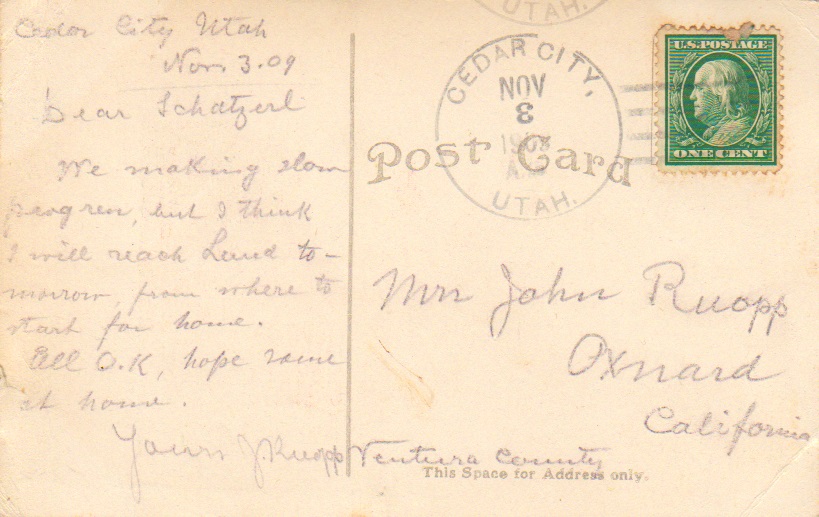 Cedar City Utah
Nov 3.09
Dear Schatzerl
We making slow
progress, but I think
I will reach Lund to-
morrow, from where to
start for home.
All O.K, hope same
at home.
Yours J Ruopp
UTAH.
CEDAR CITY,
NOV
3
UTAH.
U.S. POSTAGE
ONE CENT
Post Card
Mrs John Ruopp
Oxnard
California
Ventura County
This Space for Address only.